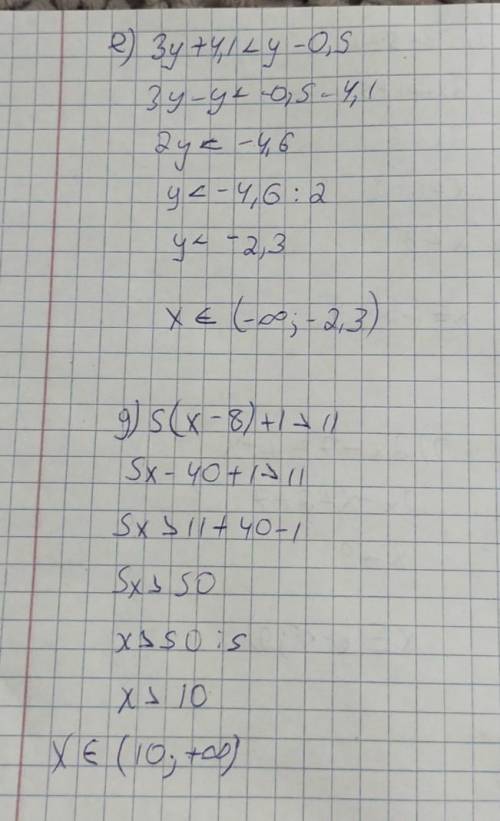 е) 3y+4,1<y-0,5
3y-y<-0,5-4,1
2y<-4,6
y<-4,6:2
y<-2,3
x∈(-∞;-2,3)
g) 5(x-8)+1>11
5x-40+1>11
5x>11+40-1
5x>50
x>50:5
x>10
X∈(10;+∞)